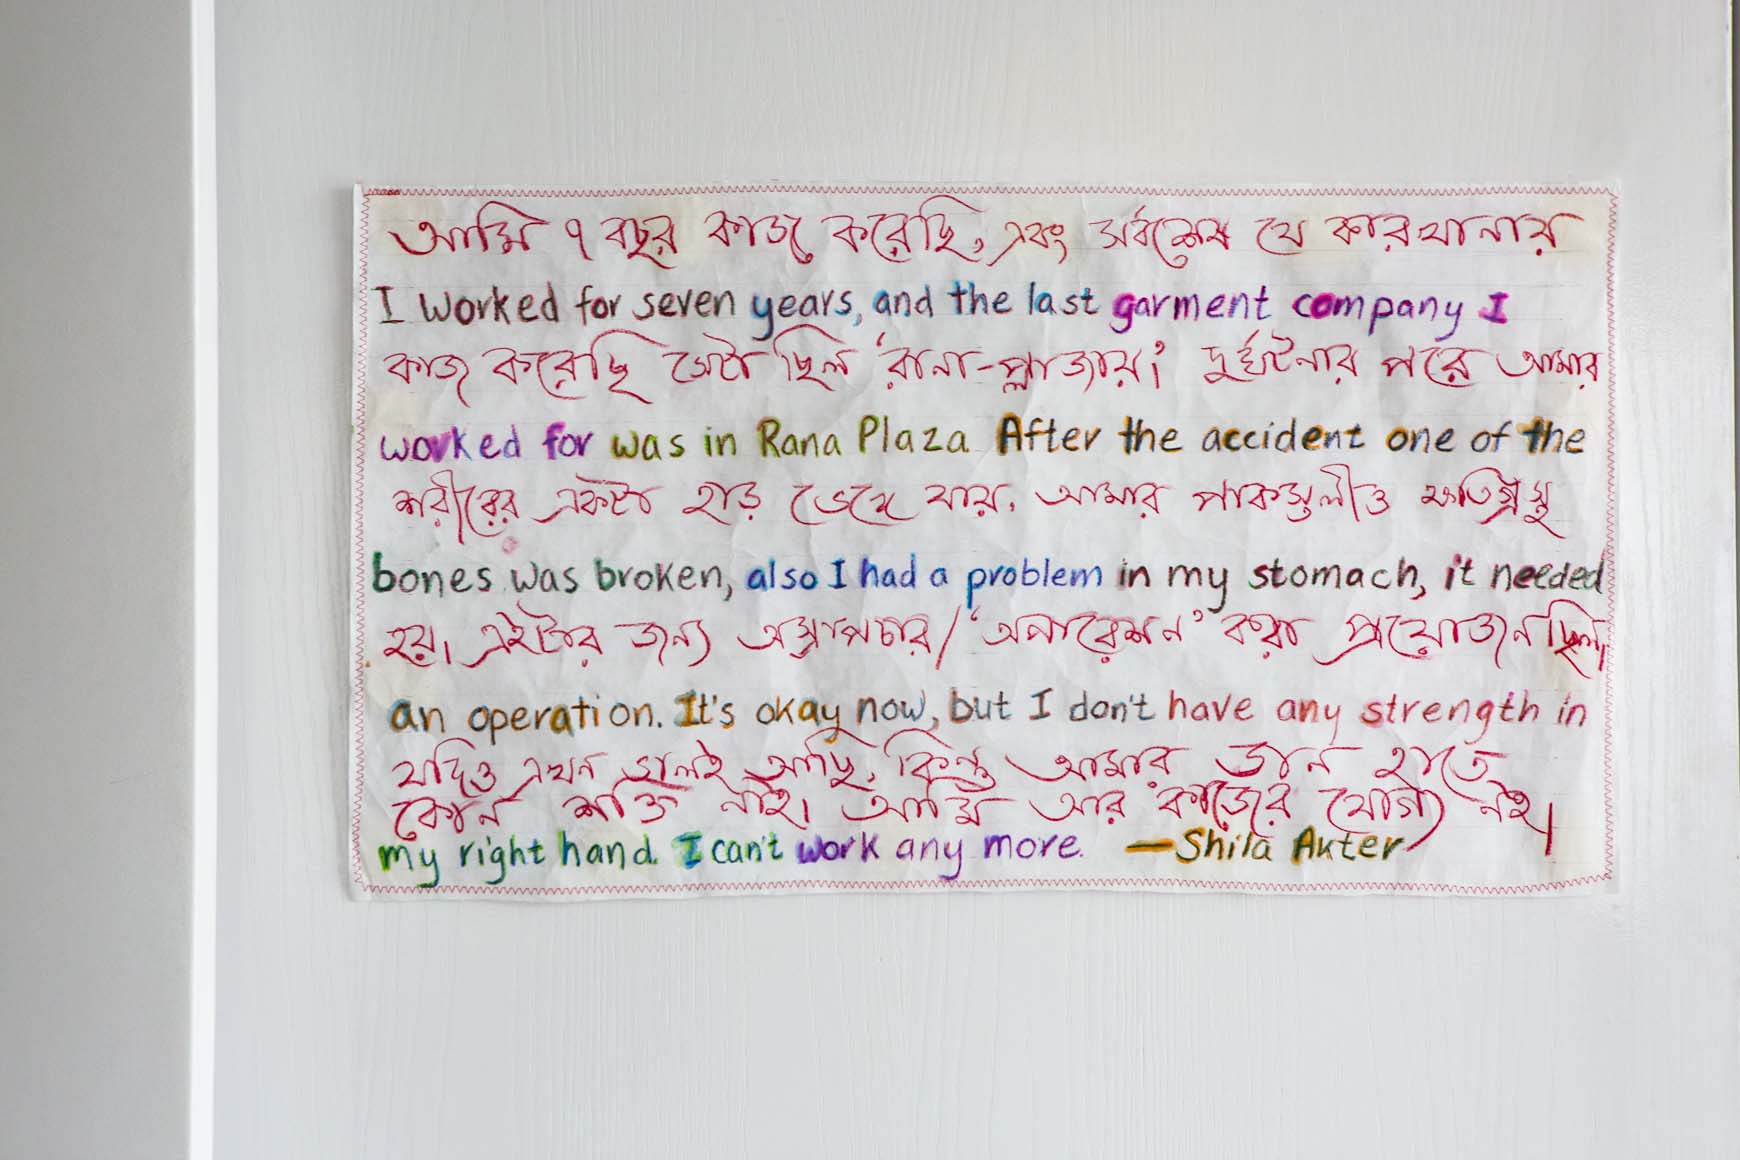 আমি ৭ বছর কাজ করেছি, এবং সর্বশেষ যে কারখানায়
I worked for seven years, and the last garment company I
কাজ করেছি সেটা ছিল 'রানা-প্লাজায়'। দুর্ঘটনার পরে আমার
worked for was in Rana Plaza. After the accident one of the
শরীরের একটা হাড় ভেঙ্গে যায়, আমার পাকস্তুলীও ক্ষতিগ্রস্থ
bones was broken, also I had a problem in my stomach, it needed
হয়। এইটার জন্য অস্ত্রাপচার/'অপারেশন' করা প্রয়োজন ছিল।
an operation. It's okay now, but I don't have any strength in
যদিও এখন ভালই আছি, কিন্তু আমার ডান হাতে
কোন শক্তি নাই। আমি আর কাজের যোগ্য নই।
my right hand. I can't work any more. —Shila Akter